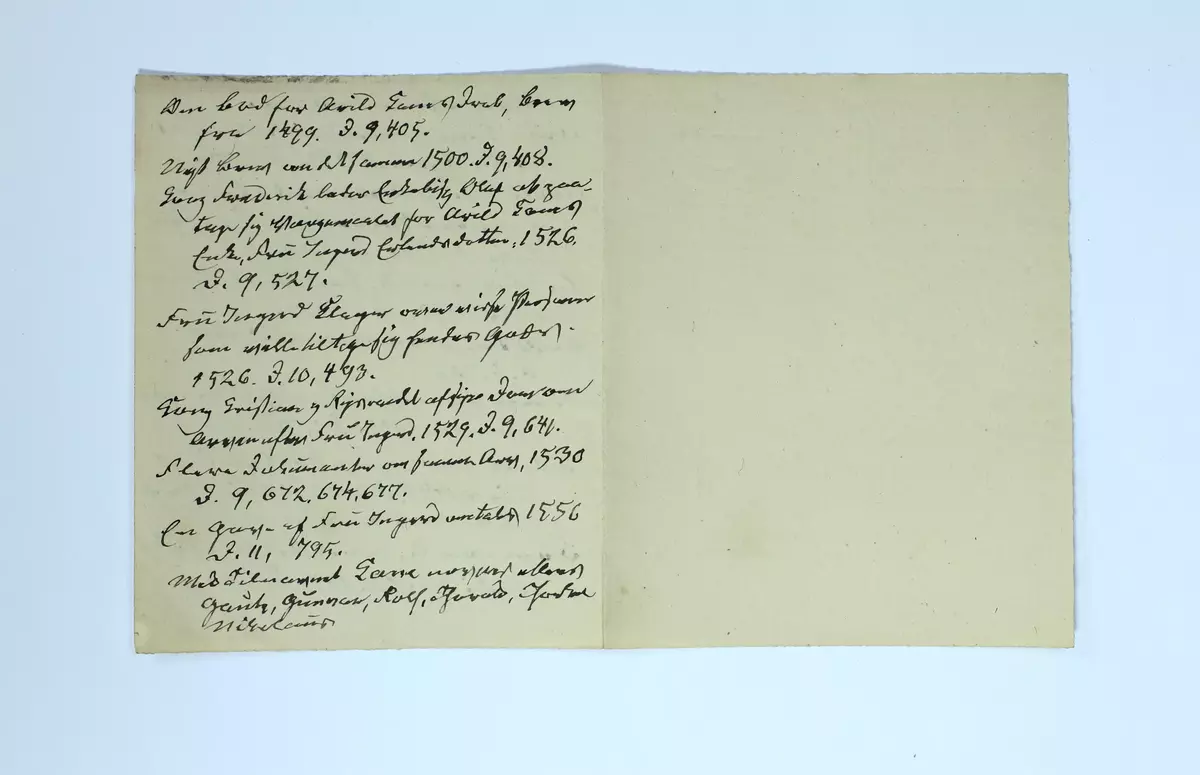 Om Bod for Arild Kanes Drab, Brev
fra 1499. D. 9, 405.
Nyt Brev om det samme 1500. D. 9, 408.
Kong Frederik beder Erkebisp Olaf at paa-
tage sig Værgemaalet for Arild Kanes
Enke, Fru Ingerd Erlendsdatter, 1526.
D. 9, 527.
Fru Ingerd klager over visse Personer
som ville tiltage sig hendes Gods.
1526. D. 10, 493.
Kong Kristian og Rigsraadet afsige Dom om
Arven efter Fru Ingerd. 1529. D. 9, 641.
Flere Dokumenter om samme Arv, 1530
D. 9, 672, 674, 677.
En Gave af Fru Ingerd omtales 1556
D. 11, 795.
Med Tilnavnet Kane nævnes ellers
Gaute, Gunnar, Rolf, Thorald,
Nikolaus